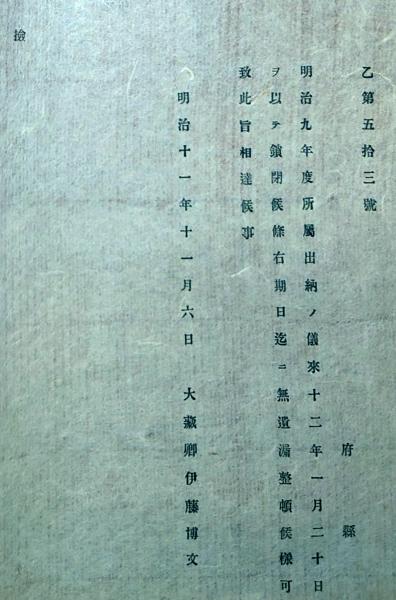 乙第五拾三號
府縣
明治九年度所屬出納ノ儀來十二年一月二十日
ヲ以テ鎖閉候條右期日迄ニ無遺漏整頓候樣可
致此旨相達候事
明治十一年十一月六日　大藏卿伊藤博文
撿